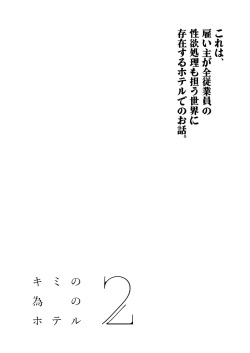 これは、
雇い主が全従業員の
性欲処理も担う世界に
存在するホテルでのお話。
キミの
為の
ホテル
2